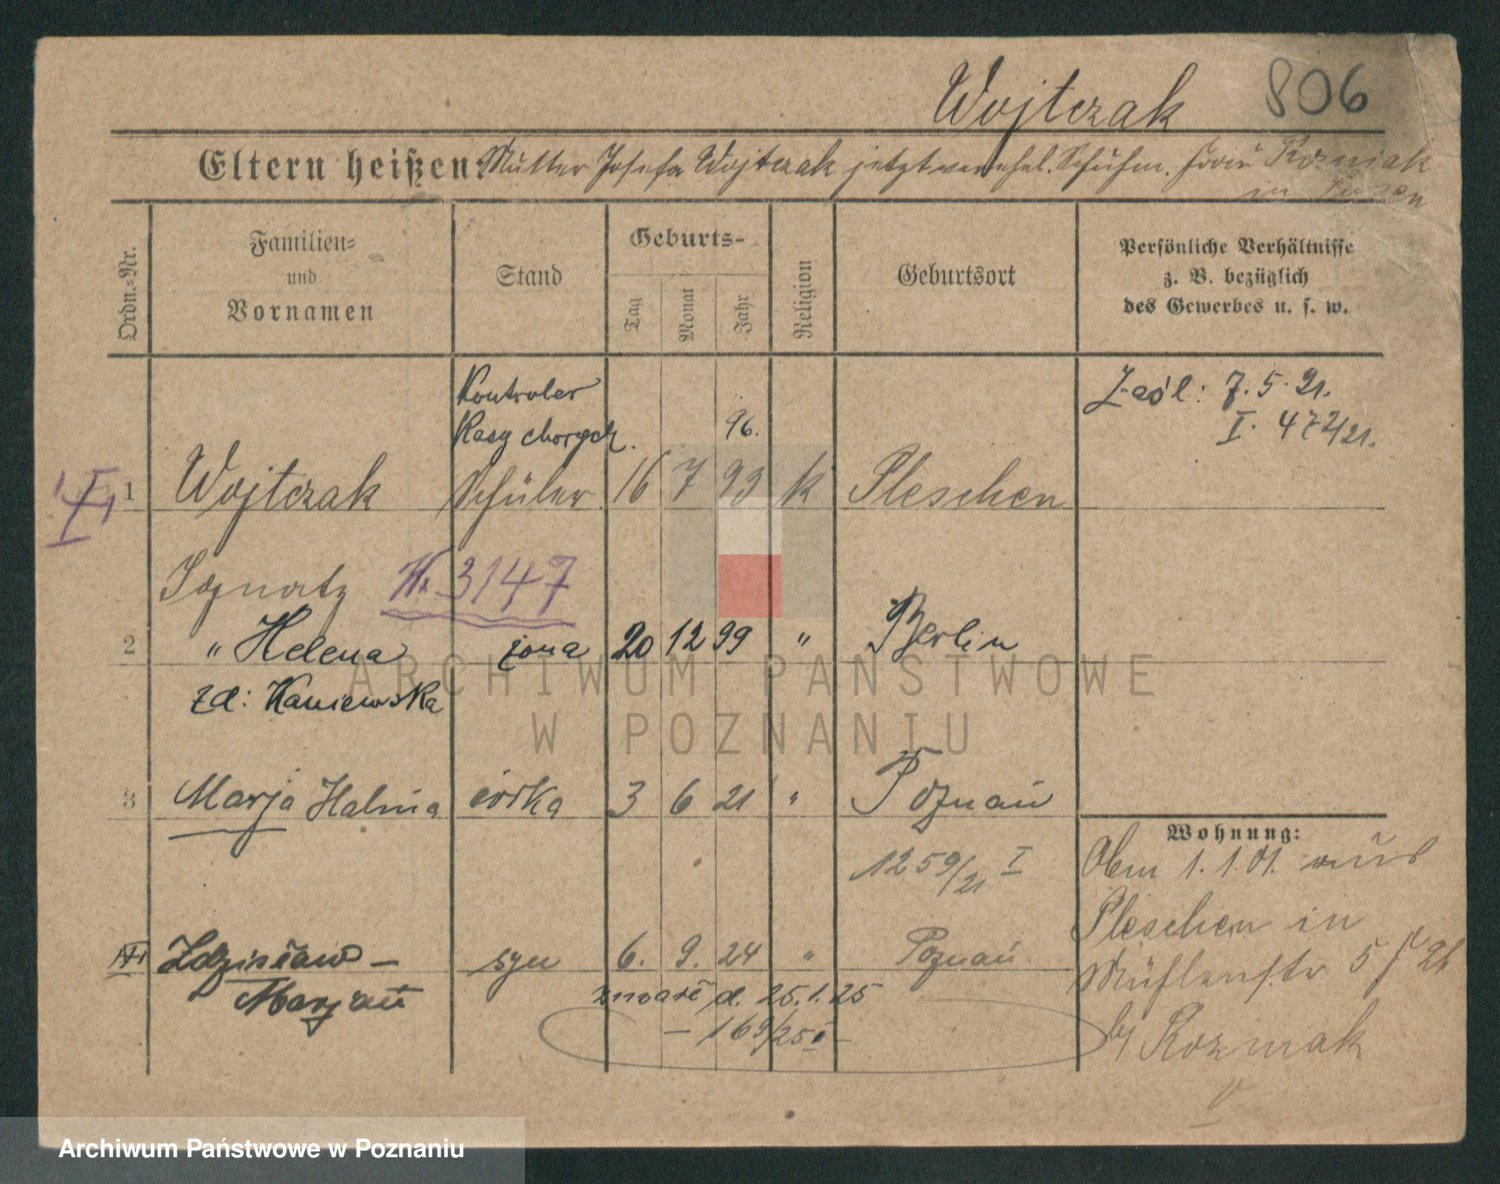 Wojtczak 806
Eltern heißen: Mutter Josefa Wojtczak jetzt verehel. Schuhm. Rozmiak
in Posen
Ordn.-Nr.
Familien- und Vornamen
Stand
Geburts-
Tag
Monat
Jahr
Religion
Geburtsort
Persönliche Verhältnisse
z. B. bezüglich
des Gewerbes u. s. w.
Kontroler
Kasy chorych.
96.
Zaśl: 7. 5. 21.
I. 472/21.
1 Wojtczak Schüler 16 7 93 k Pleschen
Ignatz № 3147
2 " Helena żona 20 12 99 " Berlin
zd: Kaniewska
3 Marja Halina córka 3 6 21 " Poznań
1259/21 I
Wohnung:
Abm 1. 1. 01. aus
Pleschen in
Mühlenstr 5
b/ Rozmiak
Zdzisław – syn 6. 9. 24 " Poznań
Marjan
zmarł d. 25. 1. 25
– 169/25 I –
ARCHIWUM PAŃSTWOWE
W POZNANIU
Archiwum Państwowe w Poznaniu